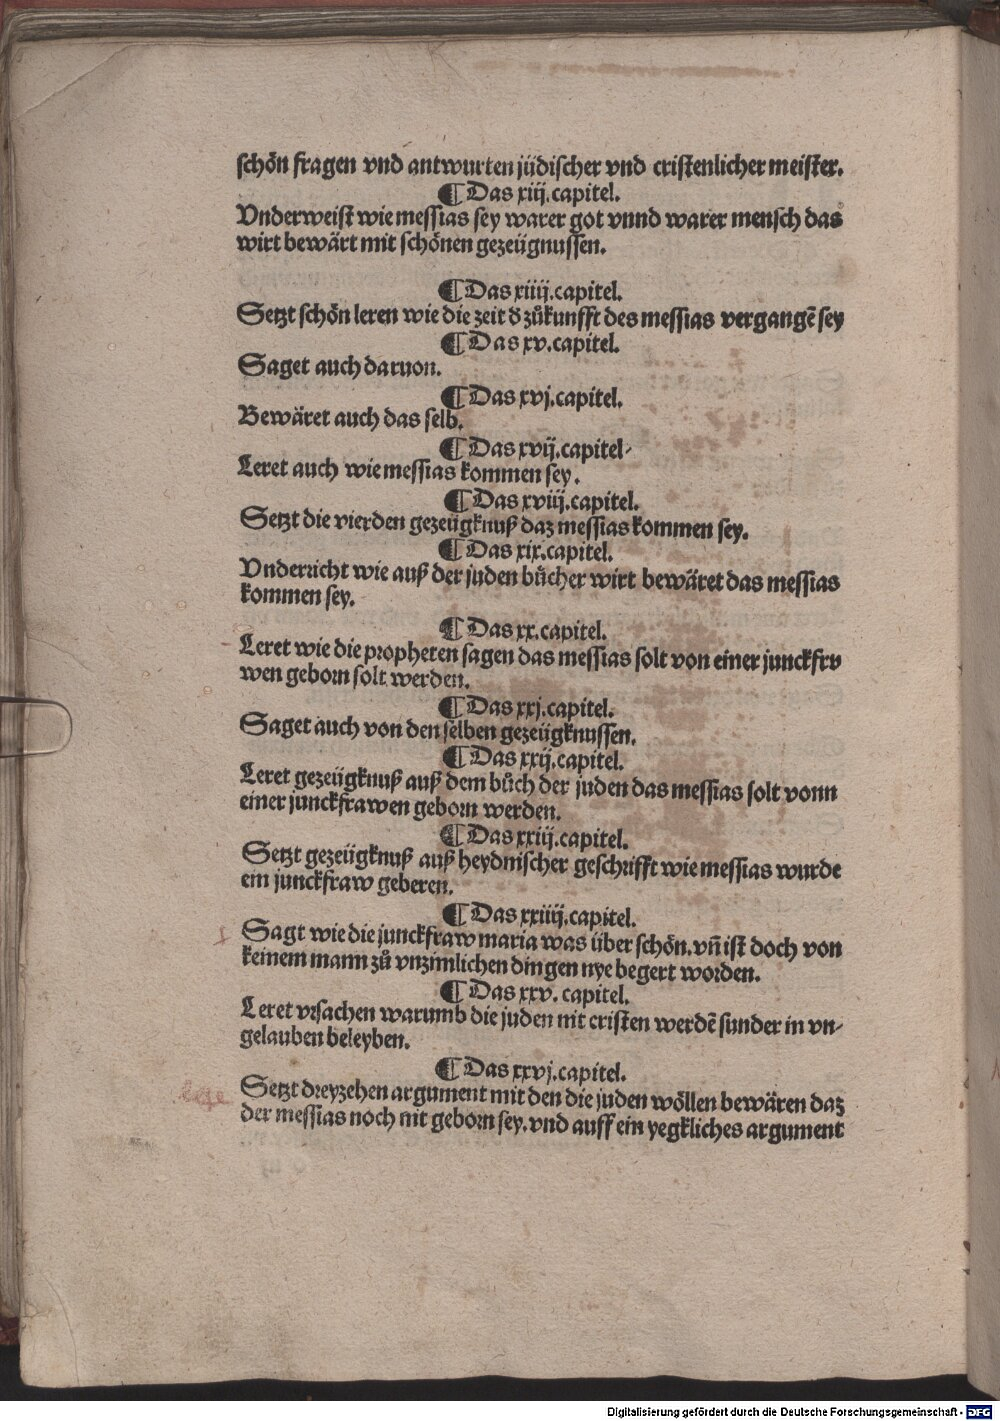 schön fragen vnd antwurten jüdischer vnd cristenlicher meister.
¶ Das xiij.capitel.
Vnderweist wie messias sey warer got vnnd warer mensch das
wirt bewärt mit schönen gezeügnussen.
¶ Das xiiij.capitel.
Setzt schön leren wie die zeit d̕ zůkunfft des messias vergangē sey
¶ Das xv.capitel.
Saget auch daruon.
¶ Das xvj.capitel.
Bewäret auch das selb.
¶ Das xvij.capitel.
Leret auch wie messias kommen sey.
¶ Das xviij.capitel.
Setzt die vierden gezeügknuß daz messias kommen sey.
¶ Das xix.capitel.
Vnderricht wie auß der juden bůcher wirt bewäret das messias
kommen sey.
¶ Das xx.capitel.
Leret wie die propheten sagen das messias solt von einer junckfrv
wen geborn solt werden.
¶ Das xxj.capitel.
Saget auch von den selben gezeügknussen.
¶ Das xxij.capitel.
Leret gezeügknuß auß dem bůch der juden das messias solt vonn
einer junckfrawen geborn werden.
¶ Das xxiij.capitel.
Setzt gezeügknuß auß heydnischer geschrifft wie messias wurde
ein junckfraw geberen.
¶ Das xxiiij.capitel.
Sagt wie die junckfraw maria was über schön.vn̄ ist doch von
keinem mann zů vnzimlichen dingen nye begert worden.
¶ Das xxv. capitel.
Leret vrsachen warumb die juden nit cristen werdē sunder in vn-
gelauben beleyben.
¶ Das xxvj.capitel.
Setzt dreyzehen argument mit den die juden wöllen bewären daz
der messias noch nit geborn sey.vnd auff ein yegkliches argument
Digitalisierung gefördert durch die Deutsche Forschungsgemeinschaft - DFG